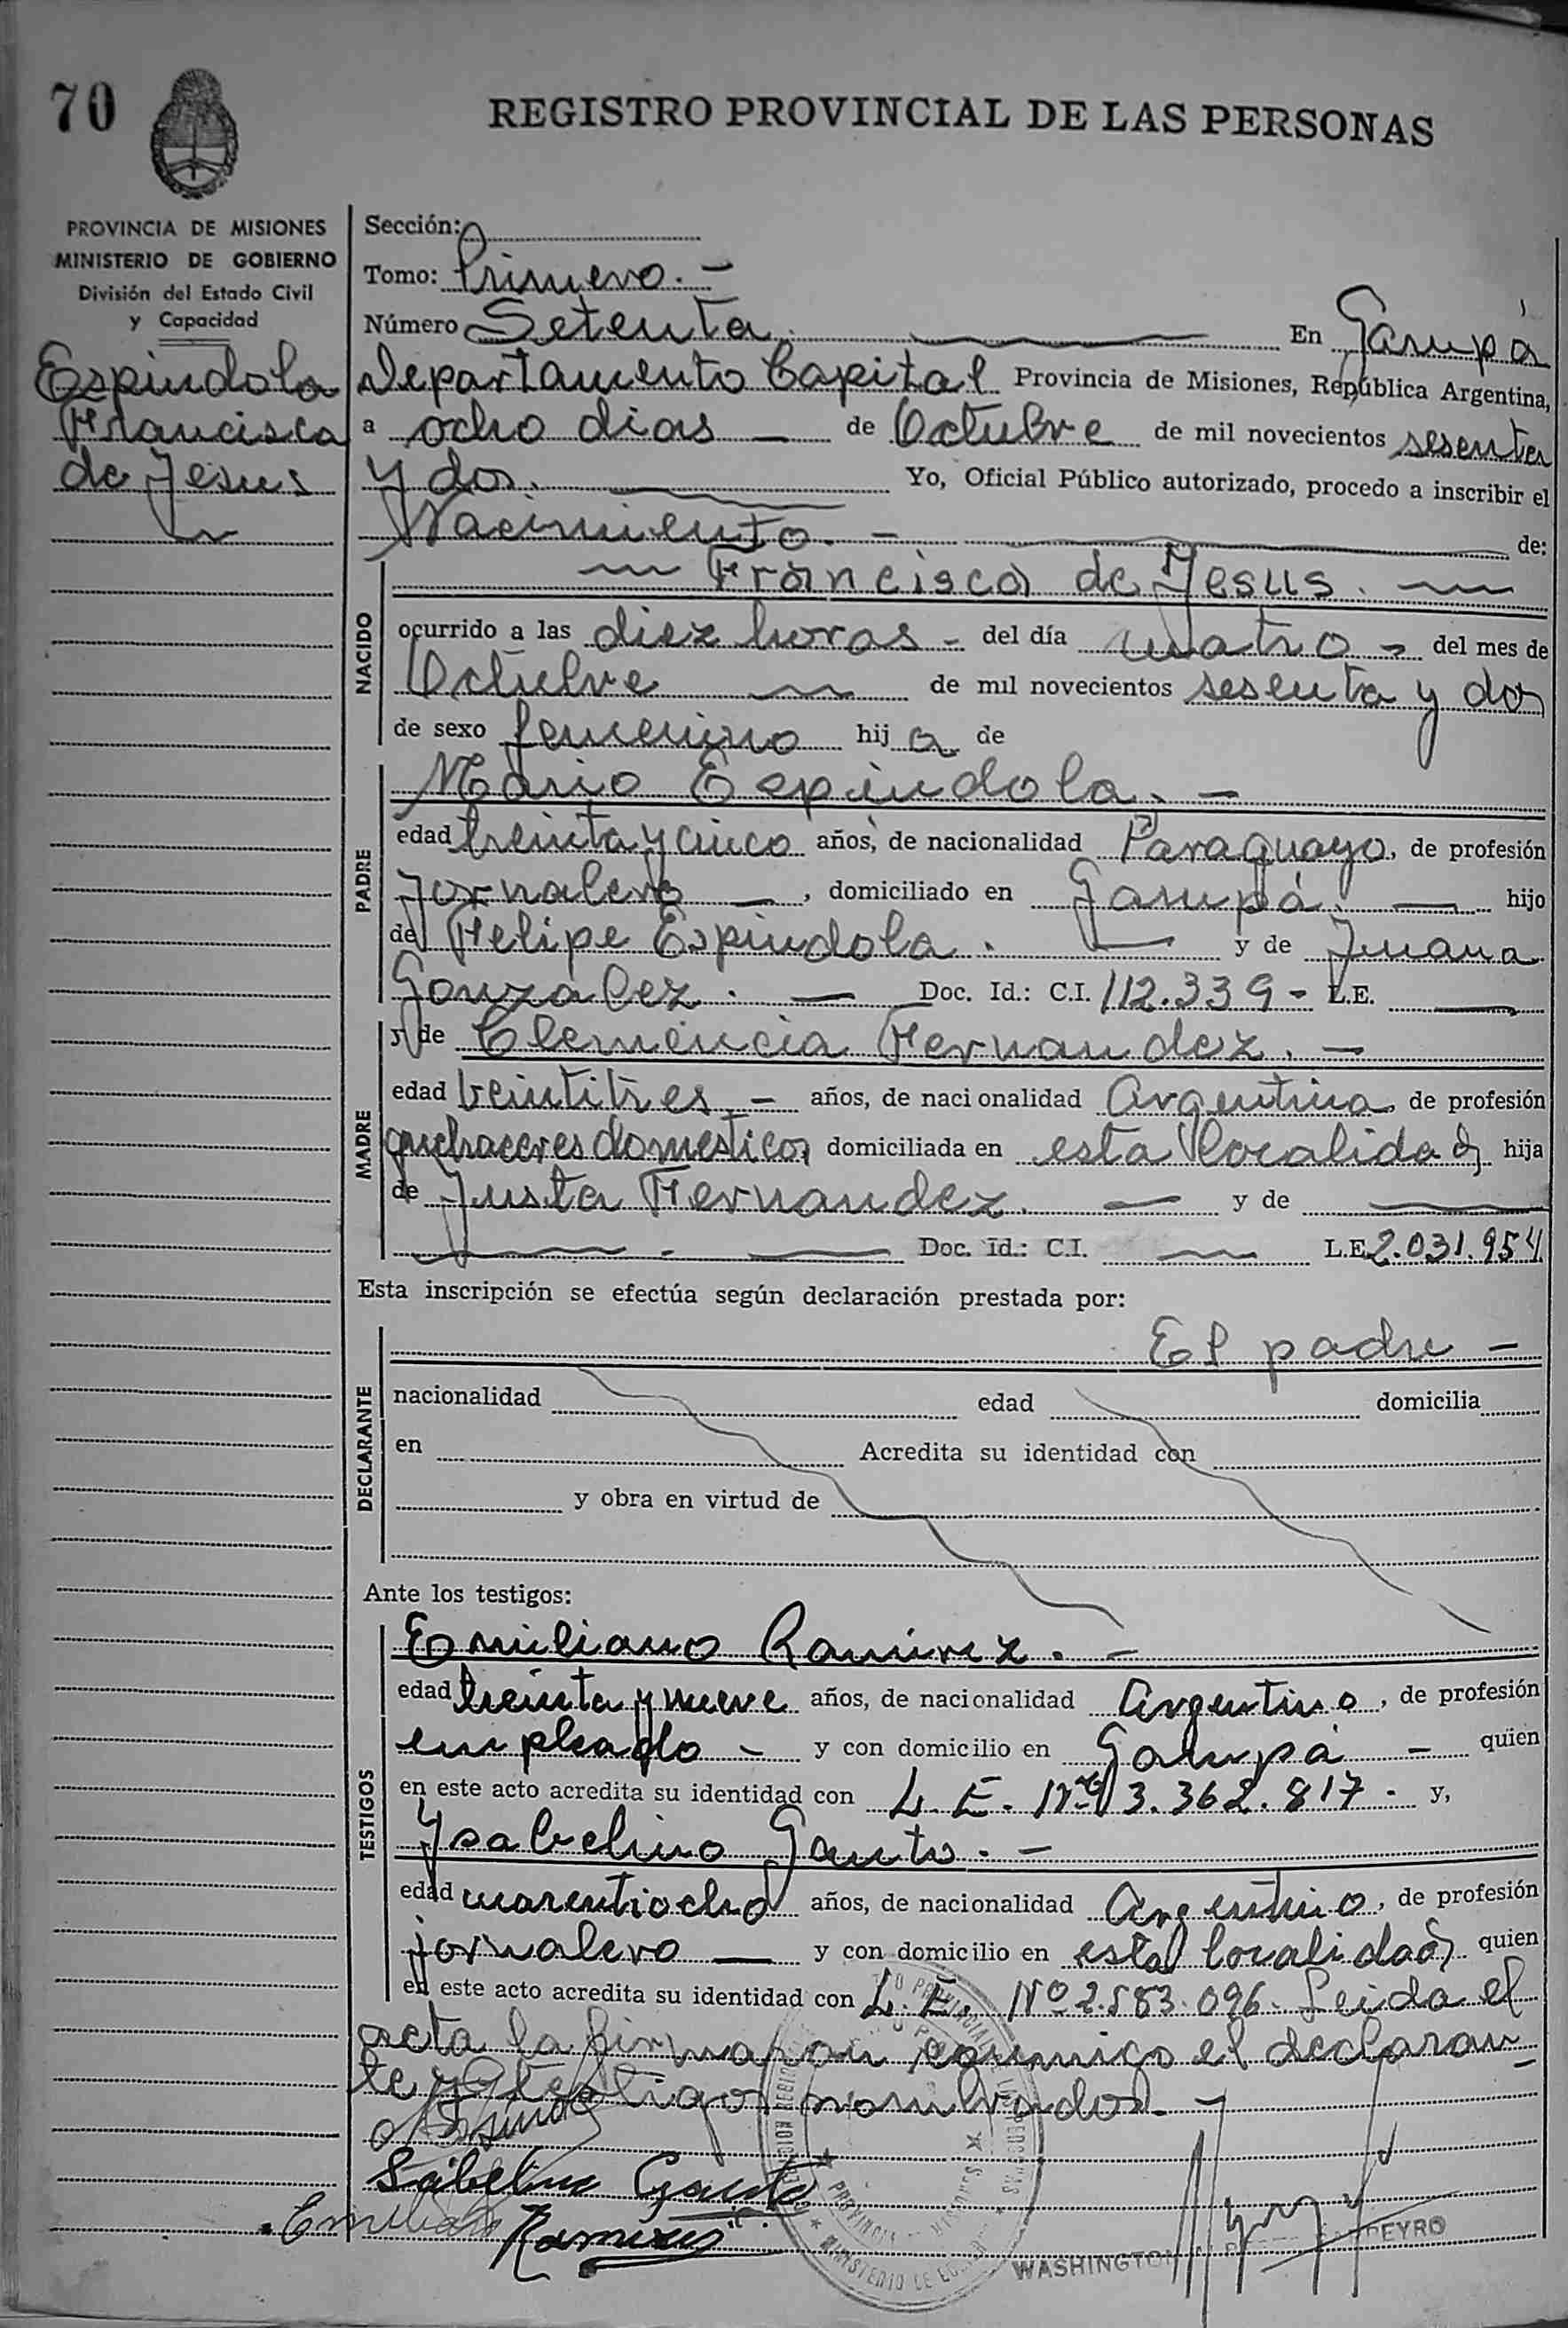 70
REGISTRO PROVINCIAL DE LAS PERSONAS
PROVINCIA DE MISIONES
MINISTERIO DE GOBIERNO
División del Estado Civil
y Capacidad
Espindola
Francisca
de Jesus
Sección:
Tomo: Primero. -
Número Setenta. En Garupá
departamento Capital Provincia de Misiones, República Argentina,
a ocho dias - de Octubre de mil novecientos sesenta
y dos. Yo, Oficial Público autorizado, procedo a inscribir el
Nacimiento. - de:
NACIDO
Francisca de Jesus.
ocurrido a las diez horas - del día cuatro - del mes de
Octubre de mil novecientos sesenta y dos
de sexo femenino hij a de
PADRE
Mario Espindola. -
edad treinta y cinco años, de nacionalidad Paraguayo, de profesión
Jornalero -, domiciliado en Garupá. - hijo
de Felipe Espindola. y de Juana
Gonzalez. - Doc. Id.: C.I. 112.339 - L.E.
MADRE
y de Clemencia Fernandez. -
edad veintitres - años, de nacionalidad Argentina, de profesión
quehaceres domesticos domiciliada en esta localidad, hija
de Justa Fernandez. - y de
Doc. Id.: C.I. L.E. 2.031.954
Esta inscripción se efectúa según declaración prestada por:
DECLARANTE
El padre -
nacionalidad edad domicilia
en Acredita su identidad con
y obra en virtud de
Ante los testigos:
TESTIGOS
Emiliano Ramirez. -
edad treinta y nueve años, de nacionalidad Argentino, de profesión
empleado - y con domicilio en Garupá - quien
en este acto acredita su identidad con L. E. Nro 3.362.817 - y,
Ysabelino Gauto. -
edad cuarentiocho años, de nacionalidad Argentino, de profesión
jornalero - y con domicilio en esta localidad, quien
en este acto acredita su identidad con L. E. Nº 2.583.096. Leida el
acta la firmaron conmigo el declaran-
te y testigos nombrados. -
Sabelino Gauto
Emiliano Ramirez
WASHINGTON